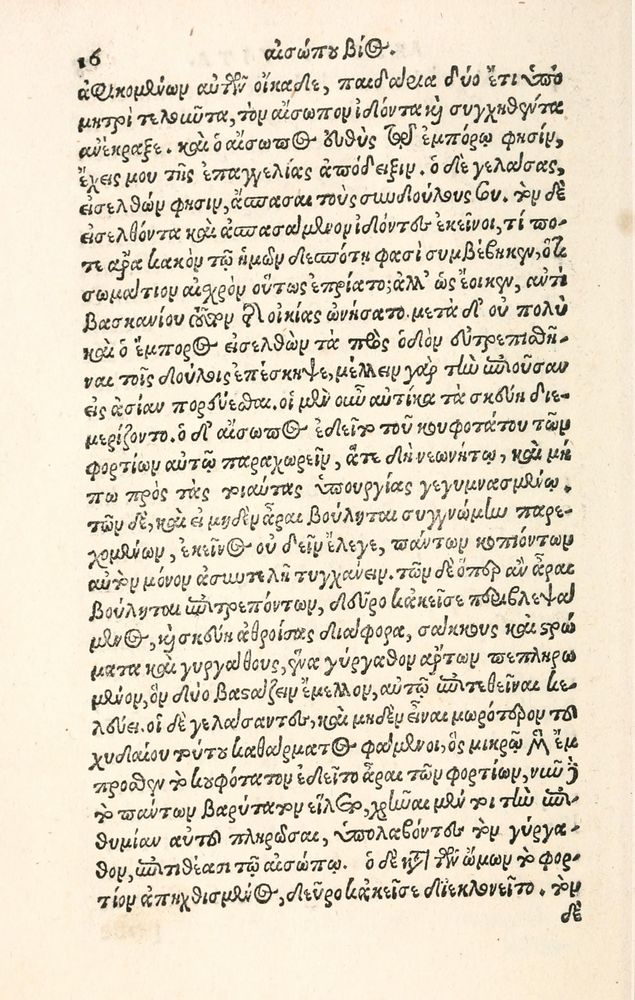 16 αἰσώπου βίος.
ἀφικομένων αὐτῶν οἴκαδε, παιδάρια δύο ἔτι ὑπὸ
μητρὶ τελοῦντα, τὸν αἴσωπον ἰδόντα καὶ συγχηθέντα
ἀνέκραξε. καὶ ὁ αἴσωπος εὐθὺς τῷ ἐμπόρῳ φησίν,
ἔχεις μου τῆς ἐπαγγελίας ἀπόδειξιν. ὁ δὲ γελάσας,
εἰσελθών φησιν, ἄσπασαι τοὺς συνδούλους σου. τὸν δὲ
εἰσελθόντα καὶ ἀσπασάμενον ἰδόντες ἐκεῖνοι, τί πο-
τε ἄρα κακὸν τῷ ἡμῶν δεσπότῃ φασὶ συμβέβηκεν, ὅτι
σωμάτιον αἰσχρὸν οὕτως ἐπρίατο; ἀλλ' ὡς ἔοικεν, ἀντὶ
βασκανίου τοῦτον τῆς οἰκίας ὠνήσατο. μετὰ δ' οὐ πολὺ
καὶ ὁ ἔμπορος εἰσελθὼν τὰ πρὸς ὁδὸν εὐτρεπισθῆ-
ναι τοῖς δούλοις ἐπέσκηψε, μέλλειν γὰρ τὴν ἐπιοῦσαν
εἰς ἀσίαν πορεύεσθαι. οἱ μὲν οὖν αὐτίκα τὰ σκεύη διε-
μερίζοντο. ὁ δ' αἴσωπος ἐδεῖτο τοῦ κουφοτάτου τῶν
φορτίων αὐτῷ παραχωρεῖν, ἅτε δὴ νεωνήτῳ, καὶ μή
πω πρὸς τὰς τοιαύτας ὑπουργίας γεγυμνασμένῳ.
τῶν δὲ, καὶ εἰ μηδὲν ἆραι βούλεται συγγνώμην παρε-
χομένων, ἐκεῖνος οὐ δεῖν ἔλεγε, πάντων κοπιόντων
αὐτὸν μόνον ἀσυντελῆ τυγχάνειν. τῶν δὲ ὅπερ ἂν ἆραι
βούληται ἐπιτρεπόντων, δεῦρο κἀκεῖσε περιβλεψά
μενος, καὶ σκεύη ἀθροίσας διάφορα, σάκκους καὶ στρώ
ματα καὶ γυργάθους, ἕνα γύργαθον ἄρτων πεπληρω
μένον, ὃν δύο βαστάζειν ἔμελλον, αὐτῷ ἐπιτεθεῖναι κε-
λεύει. οἱ δὲ γελάσαντες, καὶ μηδὲν εἶναι μωρότερον τοῦ
χυδαίου τούτου καθάρματος φάμενοι, ὃς μικρῷ μὲν ἔμ
προσθεν τὸ κουφότατον ἐδεῖτο ἆραι τῶν φορτίων, νῦν δὲ
τὸ πάντων βαρύτατον εἵλετο, χρῆναι μέν τοι τὴν ἐπι-
θυμίαν αὐτοῦ πληρῶσαι, ὑπολαβόντες τὸν γύργα-
θον, ἐπιτιθέασι τῷ αἰσώπῳ. ὁ δὲ κατὰ τῶν ὤμων τὸ φορ-
τίον ἀπηχθισμένος, δεῦρο κἀκεῖσε διεκλονεῖτο. τὸν
δὲ